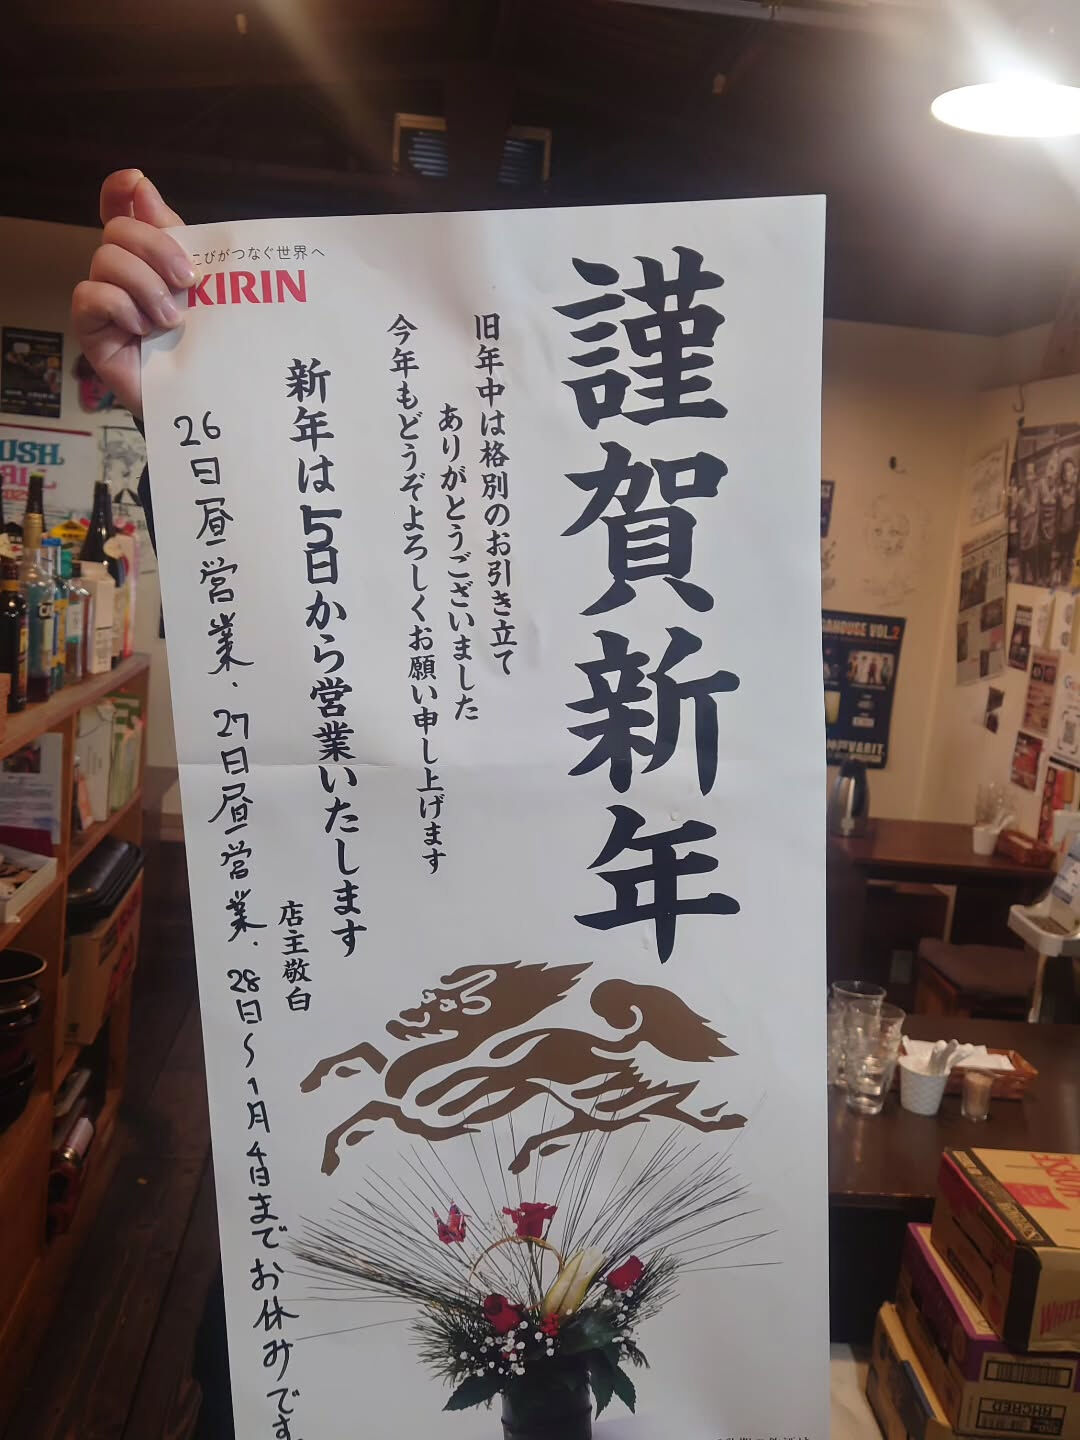 こびがつなぐ世界へ
KIRIN
謹賀新年
旧年中は格別のお引き立て
ありがとうございました
今年もどうぞよろしくお願い申し上げます
新年は5日から営業いたします
店主敬白
26日昼営業、27日昼営業、28日〜1月4日までお休みです。
USH
AHOUSE VOL.2
VARIT.
WHITE